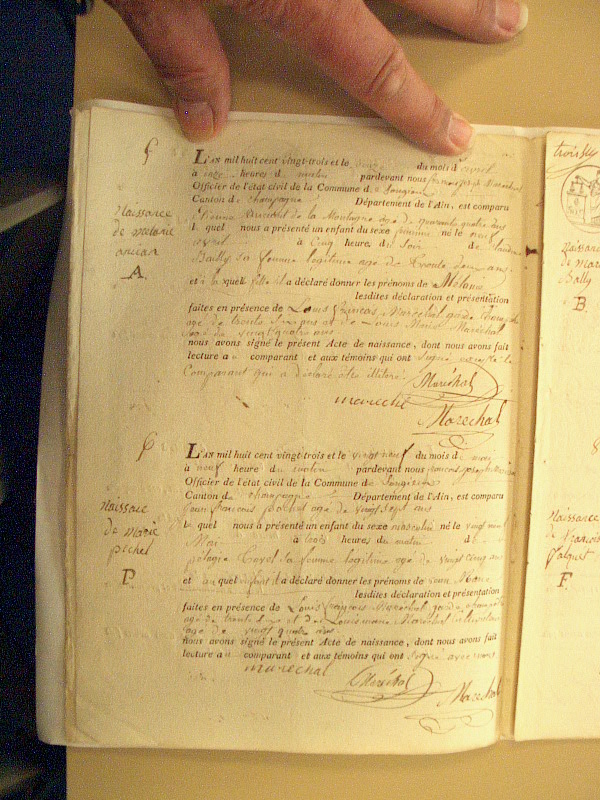 Naissance
de melanie
ancian
A.
L'AN mil huit cent vingt-trois et le onze du mois d'avril
à onze heures d matin pardevant nous françois joseph Marechal
Officier de l'état civil de la Commune de Songieu
Canton de champagne Département de l'Ain, est comparu
de la Montagne age de quarante quatre ans
le quel nous a présenté un enfant du sexe feminin né le neuf
avril à Cinq heures du Soir de Claudine
Bailly sa femme legitime age de trente deux ans
et à la quelle il a déclaré donner les prénoms de Melanie
lesdites déclaration et présentation
faites en présence de Louis François Marechal garde champêtre
age de trente Six ans et de Louis Marie Maréchal
age de vingt quatre ans
nous avons signé le présent Acte de naissance, dont nous avons fait
lecture au comparant et aux témoins qui ont Signé excepté le
Comparant qui a déclaré être illiteré
Maréchal
marechal
Marechal
Naissance
de Marie
pochet
P.
L'AN mil huit cent vingt-trois et le vingt neuf du mois d mai
à neuf heure du matin pardevant nous françois joseph Marechal
Officier de l'état civil de la Commune de Songieu
Canton de champagne Département de l'Ain, est comparu
Jean francois pochet age de vingt sept ans
le quel nous a présenté un enfant du sexe masculin né le vingt neuf
Mai à trois heures du matin de
pélagie sa femme legitime age de vingt cinq ans
et au quel enfant il a déclaré donner les prénoms de Jean Marie
lesdites déclaration et présentation
faites en présence de Louis françois Maréchal garde champetre
age de trente Six et de Louis marie Maréchal
age de vingt quatre ans
nous avons signé le présent Acte de naissance, dont nous avons fait
lecture au comparant et aux témoins qui ont Signé avec nous
marechal
Maréchal
Marechal
Naissance
de
Bally
B.
Naissance
de François
F.